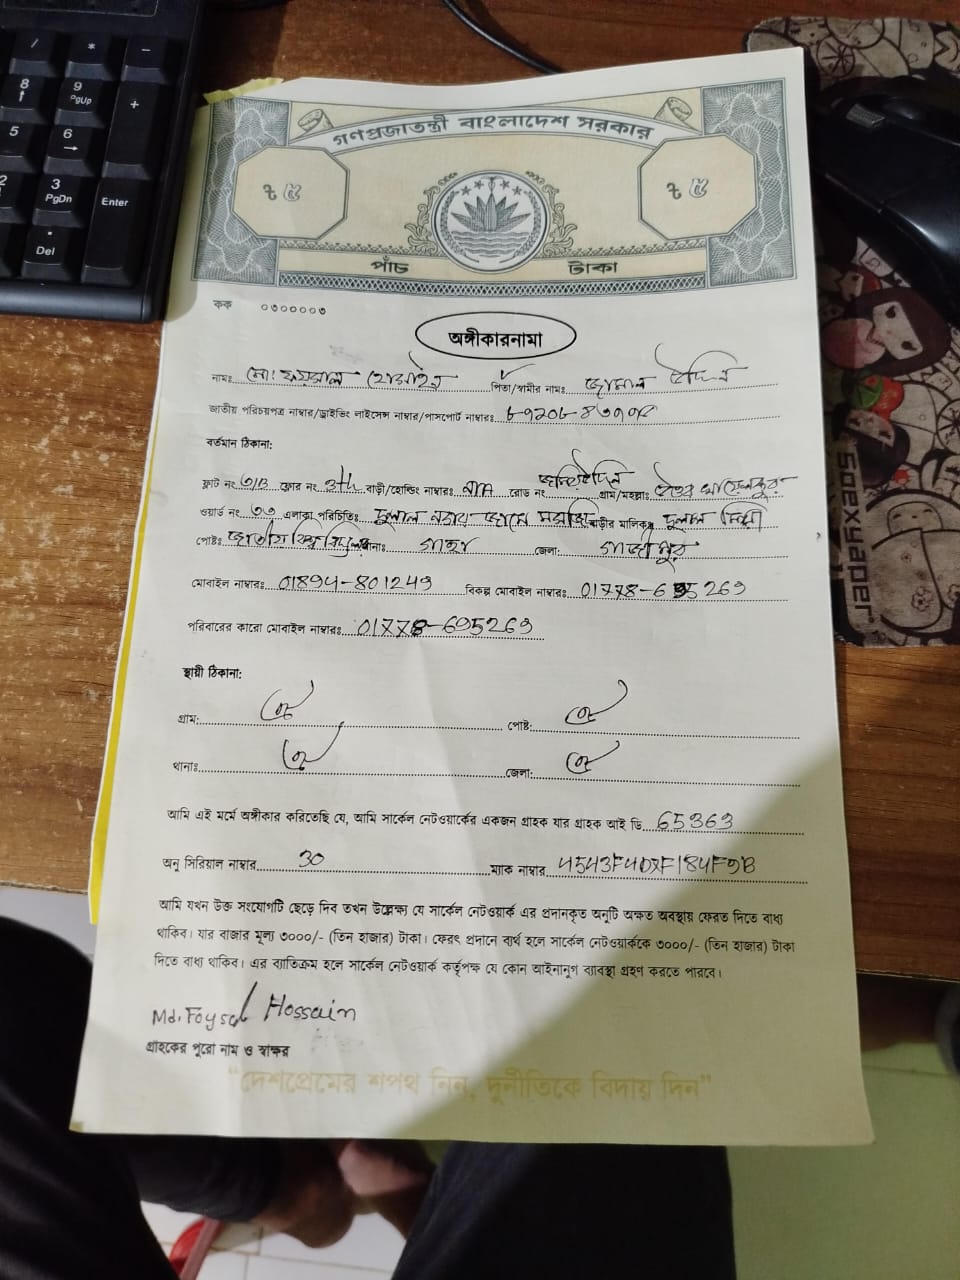 গণপ্রজাতন্ত্রী বাংলাদেশ সরকার
৳ ৫ ৳ ৫
পাঁচ টাকা
কক ০৩০০০০৩
অঙ্গীকারনামা
নামঃ মো: ফয়সাল হোসাইন পিতা/স্বামীর নামঃ জামাল উদ্দিন
জাতীয় পরিচয়পত্র নাম্বার/ড্রাইভিং লাইসেন্স নাম্বার/পাসপোর্ট নাম্বারঃ
বর্তমান ঠিকানা:
ফ্লাট নং ৩/B ফ্লোর নং 3th বাড়ী/হোল্ডিং নাম্বারঃ N/A রোড নং গ্রাম/মহল্লাঃ উত্তর
ওয়ার্ড নং ৩৩ এলাকা পরিচিতিঃ দুলাল জামে মসজিদ বাড়ীর মালিকঃ দুলাল
পোষ্টঃ জাতীয় থানাঃ গাছা জেলা: গাজীপুর
মোবাইল নাম্বারঃ 01894-801249 বিকল্প মোবাইল নাম্বারঃ 01778-695269
পরিবারের কারো মোবাইল নাম্বারঃ 01778-695269
স্থায়ী ঠিকানা:
গ্রাম: ঐ পোষ্ট: ঐ
থানাঃ ঐ জেলা: ঐ
আমি এই মর্মে অঙ্গীকার করিতেছি যে, আমি সার্কেল নেটওয়ার্কের একজন গ্রাহক যার গ্রাহক আই ডি 65363
অনু সিরিয়াল নাম্বার 30 ম্যাক নাম্বার
আমি যখন উক্ত সংযোগটি ছেড়ে দিব তখন উল্লেক্ষ্য যে সার্কেল নেটওয়ার্ক এর প্রদানকৃত অনুটি অক্ষত অবস্থায় ফেরত দিতে বাধ্য
থাকিব। যার বাজার মূল্য ৩০০০/- (তিন হাজার) টাকা। ফেরৎ প্রদানে ব্যর্থ হলে সার্কেল নেটওয়ার্ককে ৩০০০/- (তিন হাজার) টাকা
দিতে বাধ্য থাকিব। এর ব্যাতিক্রম হলে সার্কেল নেটওয়ার্ক কর্তৃপক্ষ যে কোন আইনানুগ ব্যাবস্থা গ্রহণ করতে পারবে।
Md. Foysal Hossain
গ্রাহকের পুরো নাম ও স্বাক্ষর
"দেশপ্রেমের শপথ নিন, দুর্নীতিকে বিদায় দিন"
/ * -
8 9 PgUp +
5 6
2 3 PgDn Enter
. Del
soexypaper